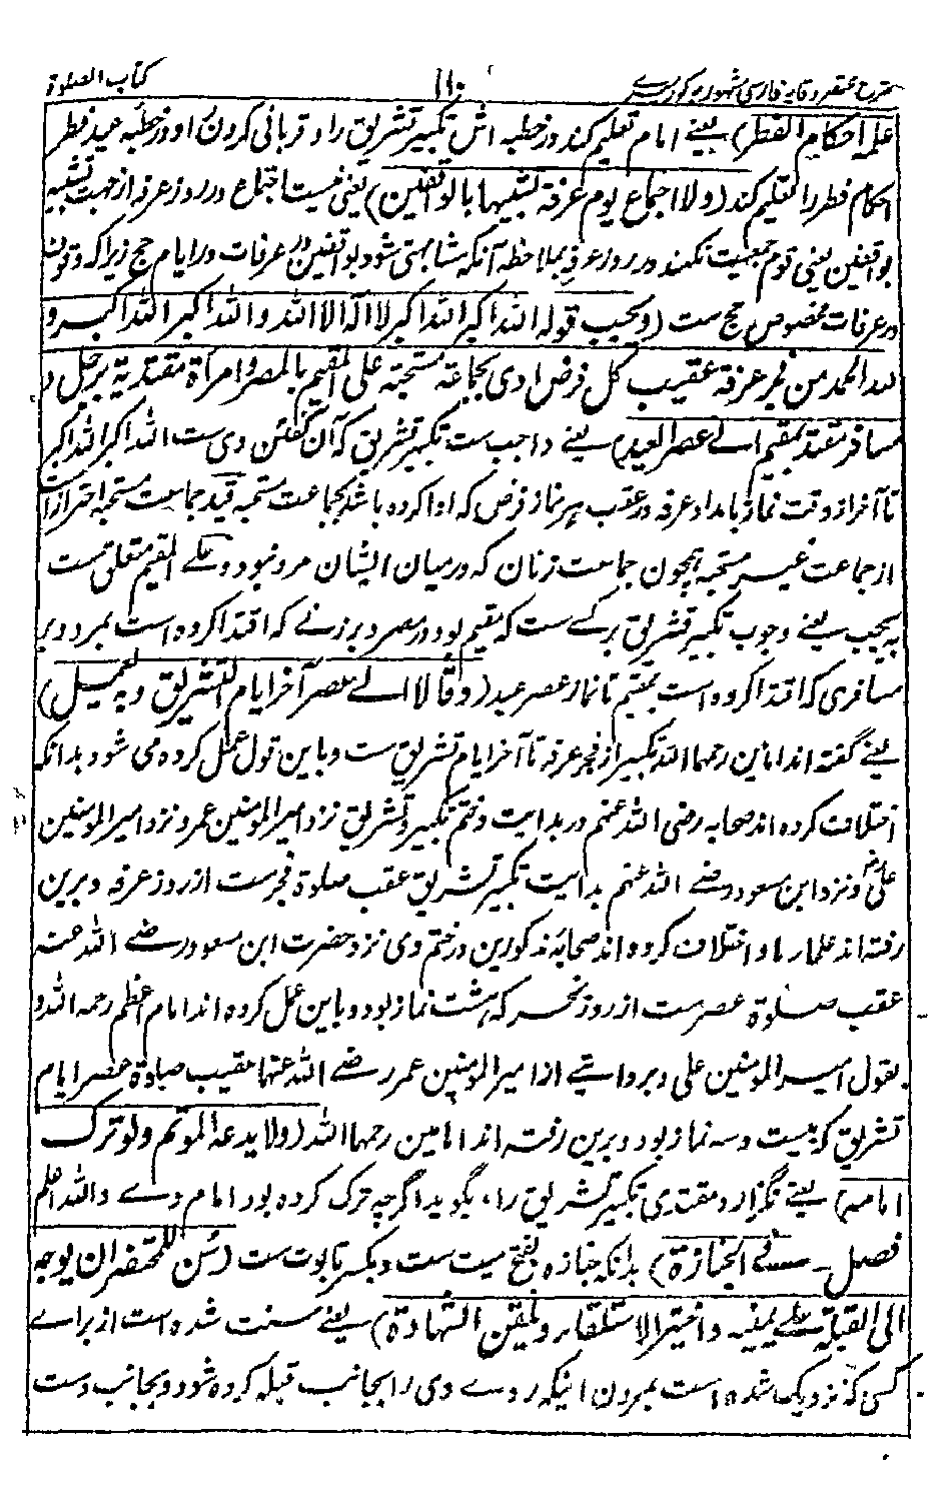 شرح مختصر وقایه فارسی مشهور به کورسری ۱۱۰ کتاب الصلوة
علم احکام الفطر) یعنے امام تعلیم کند در خطبه اش تکبیر تشریق را و قربانی کردن او در خطبه عید فطر
احکام فطر را تعلیم کند (ولا اجماع یوم عرفة تشبیها بالواقفین) یعنی نیست اجتماع در روز عرفه از جهت تشبیه
بواقفین یعنی قوم جمعیت نکنند در روز عرفه بملاحظه آنکه مشابهتی شود بواقفین در عرفات در ایام حج زیرا که وقوف
در عرفات مخصوص حج ست (ویجب قوله الله اکبر الله اکبر لا اله الا الله والله اکبر الله اکبر و
لله الحمد من فجر عرفة عقیب کل فرض ادی بجماعة مستحبة علی المقیم بالمصر وامراة مقتدیة برجل و
مسافر مقتد بمقیم الے عصر العید) یعنے واجب ست تکبیر تشریق که آن گفتن وی ست الله اکبر الله اکبر
تا آخر از وقت نماز بامداد عرفه در عقب هر نماز فرض که ادا کرده باشد بجماعت مستحبه قید جماعت مستحبه احتراز است
از جماعت غیر مستحبه همچون جماعت زنان که درمیان ایشان مرد نبود و علے المقیم متعلق ست
به یجب یعنے وجوب تکبیر تشریق بر کسے ست که مقیم بود در مصر و بر زنے که اقتدا کرده است بمرد و بر
مسافری که اقتدا کرده است بمقیم تا نماز عصر عید (وقالا الے عصر آخر ایام التشریق وبه یعمل)
یعنے گفته اند امامین رحمهما الله تکبیر از فجر عرفه تا آخر ایام تشریق ست و باین قول عمل کرده می شود بدانکه
اختلاف کرده اند صحابه رضی الله عنهم در بدایت و ختم تکبیر تشریق نزد امیرالمومنین عمر و نزد امیرالمومنین
علی و نزد ابن مسعود رضے الله عنهم بدایت تکبیر تشریق عقب صلوة فجر ست از روز عرفه و برین
رفته اند علمار ما و اختلاف کرده اند صحابه مذکورین در ختم وی نزد حضرت ابن مسعود رضے الله عنه
عقب صلوة عصر ست از روز نحر که هشت نماز بود و باین عمل کرده اند امام اعظم رحمه الله و
بقول امیر المومنین علی و بروایتے از امیر المومنین عمر رضے الله عنهما عقیب صلوة عصر ایام
تشریق که بیست و سه نماز بود و برین رفته اند امامین رحمهما الله (ولا یدعه المؤتم ولو ترک
امامه) یعنے نگزارد مقتدی تکبیر تشریق را، بگوید اگرچه ترک کرده بود امام وے والله اعلم
فصل فے الجنازة) بدانکه جنازه بفتح میت ست و بکسر تابوت ست (سُنّ للمحتضر ان یوجه
الی القبلة علے یمینه واختیر الاستلقاء ویلقن الشهادة) یعنے سنت شده است از براے
کسی که نزدیک شده است بمردن اینکه روے وی را بجانب قبله کرده شود و بجانب دست